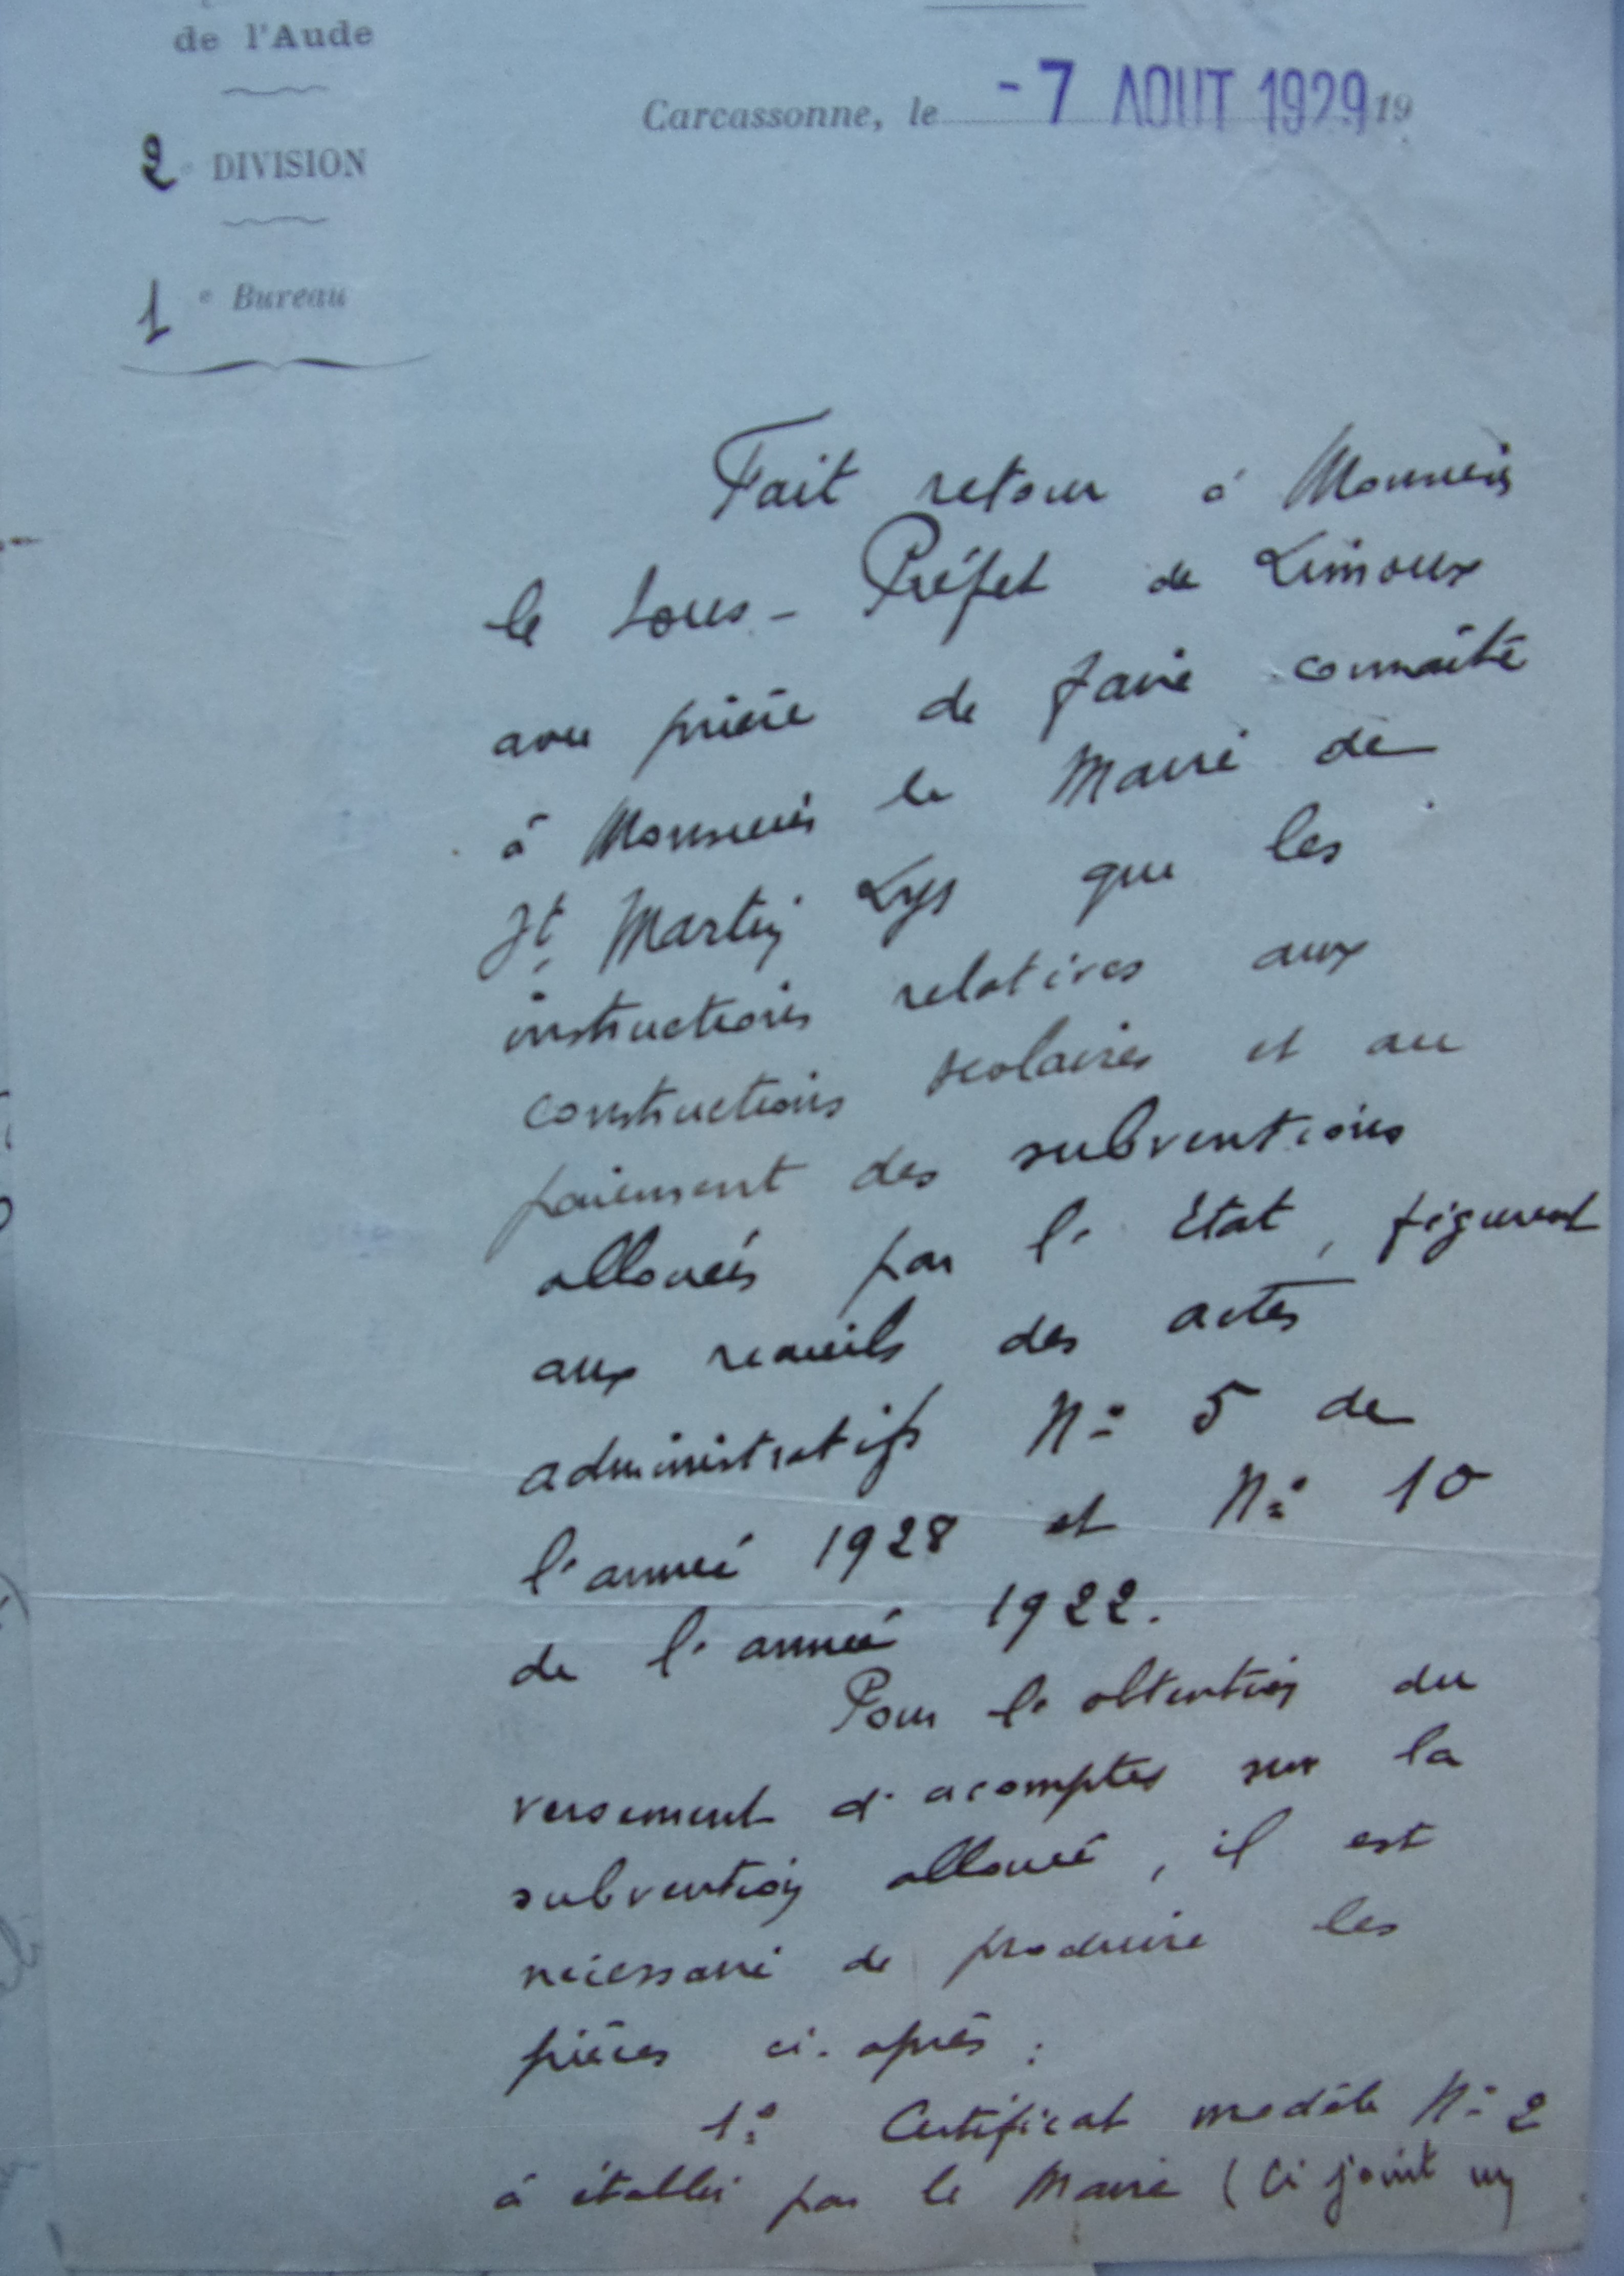 de l'Aude
Carcassonne, le -7 AOUT 1929 19
2e DIVISION
1e Bureau
Fait retour à Monsieur
le Sous-Préfet de Limoux
avec prière de faire connaître
à Monsieur le Maire de
St Martin Lys que les
instructions relatives aux
constructions scolaires et au
paiement des subventions
allouées par l'Etat, figurent
aux recueils des actes
administratifs No 5 de
l'année 1928 et No 10
de l'année 1922.
Pour l'obtention du
versement d'acomptes sur la
subvention allouée, il est
nécessaire de produire les
pièces ci-après :
1o Certificat modèle No 2
à établir par le Maire (ci joint un